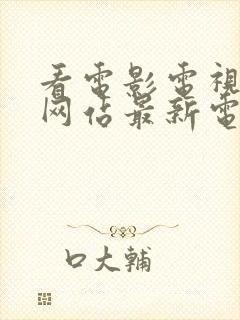 看電影電視
网佔最新電
口大輔